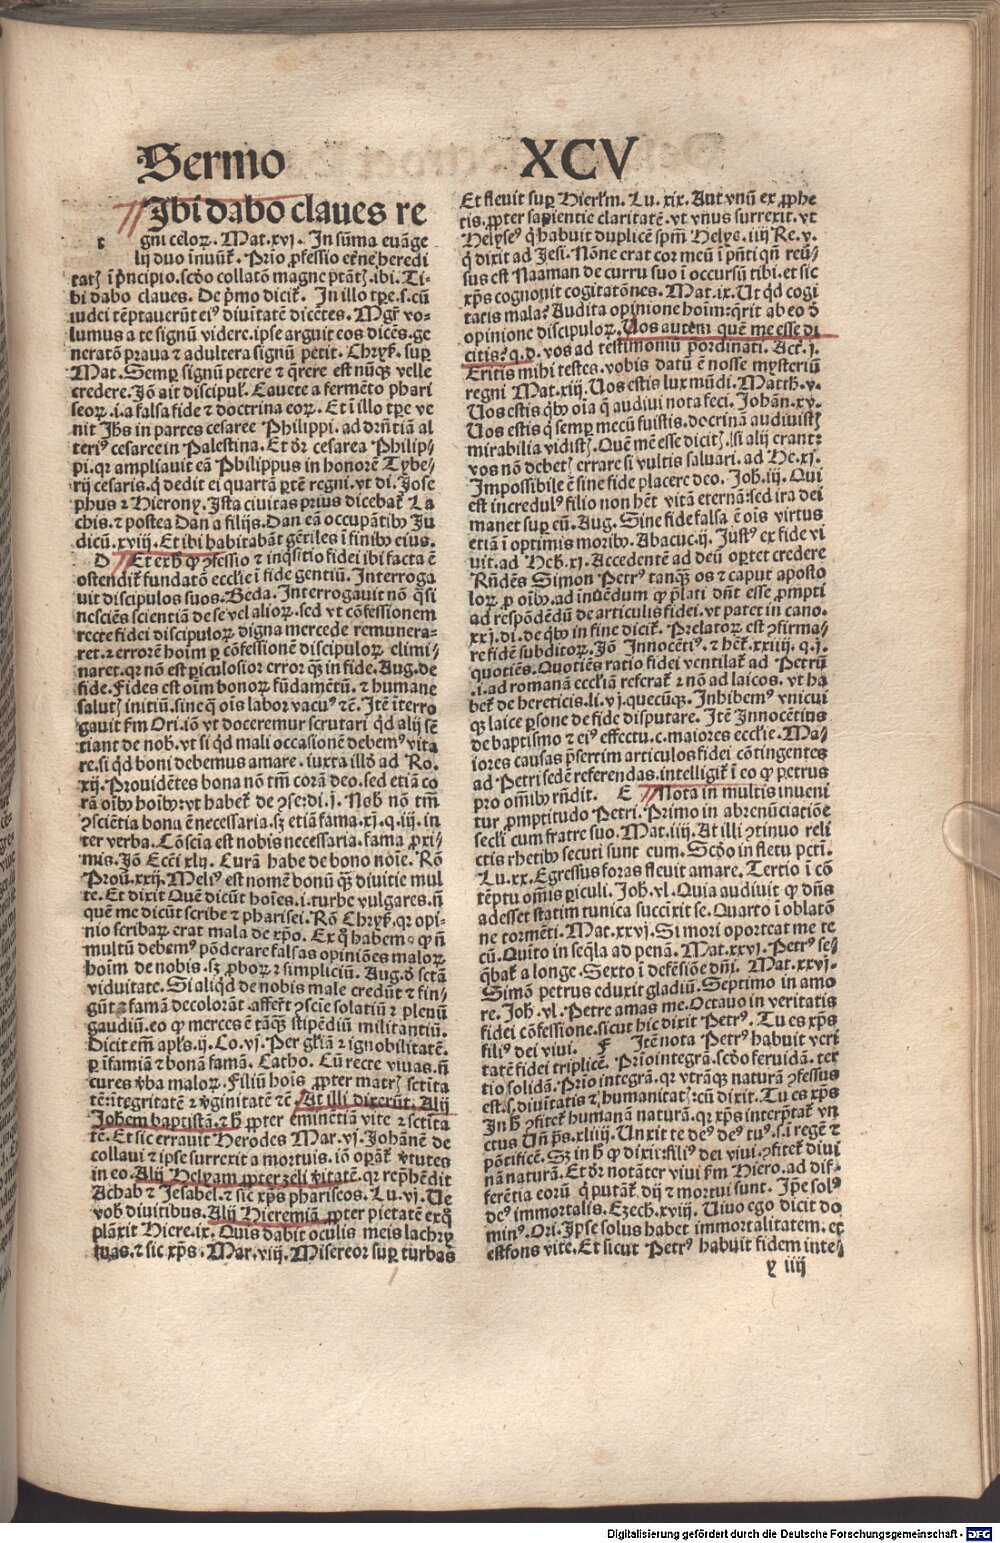 Sermo XCV
Ibi dabo claues re
t gni celoꝝ. Mat. xvj. In sūma euāge
lij duo īnuūt᷑. Prīo ꝓfessio eterne heredi
tatꝭ ī pͥncipio. scd̄o collatō magne ptātꝭ. ibi. Ti-
bi dabo claues. De pͥmo dicit᷑. In illo tp̄e. s. cū
iudei tēptauerūt eiꝰ diuitatē dicētes. Mgr̄ vo-
lumus a te signū videre. ipse arguit eos dicēs. ge
neratō praua ⁊ adultera signū petit. Chryſ. suꝑ
Mat. Semꝑ signū petere ⁊ q̄rere est nūqꝫ velle
credere. Jō ait discipul̓. Cauete a fermēto phari
seoꝝ. i. a falsa fide ⁊ doctrina eoꝝ. Et ī illo tp̄e ve
nit Jh̄s in partes cesaree Philippi. ad dr̄ntiā al
teriꝰ cesaree in Palestina. Et dr̄ cesarea Philip-
pi. qr ampliauit eā Philippus in honorē Tybe-
rij cesaris. q̄ dedit ei quartā ꝑtē regni. vt di. Jose
phus ⁊ Hierony. Ista ciuitas prius dicebat᷑ La
chis. ⁊ postea Dan a filijs. Dan eā occupātibꝰ Ju
dicū. xviij. Et ibi habitabāt gētiles ī finibꝰ eius.
D Et ex h̄ ꝙ ꝯfessio ⁊ inq̄sitio fidei ibi facta ē
ostendit᷑ fundatō eccl̄ie ī fide gentiū. Interroga
uit discipulos suos. Beda. Interrogauit nō q̄si
nesciēs scientiā de se vel alioꝝ. sed vt cōfessionem
recte fidei discipuloꝝ digna mercede remunera-
ret. ⁊ errorē hoīm ꝑ cōfessionē discipuloꝝ elimi-
naret. qr nō est ꝑiculosior error qꝫ in fide. Aug. de
fide. Fides est oīm bonoꝝ fūdamētū. ⁊ humane
salutꝭ initiū. sine q̄ ois labor vacuꝰ ⁊ē. Itē īterro
gauit ẜm Ori. iō vt doceremur scrutari qd̄ alij sē
tiant de nob̄. vt si qd̄ mali occasionē debemꝰ vita
re. si qd̄ boni debemus amare. iuxta illd̄ ad Ro.
xij. Prouidētes bona nō tm̄ corā deo. sed etiā co
rā oībꝰ hoībꝰ. vt habet᷑ de ꝯse. di. j. Nob̄ nō tm̄
ꝯsciētia bona ē necessaria. sꝫ etiā fama. xj. q. iij. in
ter verba. Cōscia est nobis necessaria. fama ꝓxi-
mis. Jō Ecci xlij. Curā habe de bono noīe. Rō
Prou. xxij. Meliꝰ est nomē bonū qꝫ diuitie mul
te. Et dixit Quē dicūt hoīes. i. turbe vulgares. n̄
quē me dicūt scribe ⁊ pharisei. Rō Chryſ. qr opi-
nio scribaꝝ erat mala de xp̄o. Ex q̄ habemꝰ ꝙ n̄
multū debemꝰ pōderare falsas opiniōes maloꝝ
hoīm de nobis. sꝫ ꝓboꝝ ⁊ simpliciū. Aug. d̓ sctā
viduitate. Si aliqd̄ de nobis male credūt ⁊ fin-
gūt ⁊ famā decolorāt. affert̓ ꝯscie solatiū ⁊ plenū
gaudiū. eo ꝙ merces ē tāqꝫ stipēdiū militantiū.
Dicit em̄ apl̄s. ij. Co. vj. Per gl̄iā ⁊ ignobilitatē.
ꝑ īfamiā ⁊ bonā famā. Catho. Cū recte viuas. n̄
cures v̄ba maloꝝ. Filiū hoīs ꝓpter matrꝭ sctīta
tē: ītegritatē ⁊ v̓ginitatē ⁊ē. At illi dixerūt. Alij
Johem̄ baptistā. ⁊ h̄ ꝓpter eminētiā vite ⁊ sctīta
tē. Et sic errauit Herodes Mar. vj. Johānē de
collaui ⁊ ipse surrexit a mortuis. iō oꝑat᷑ v̓tutes
in eo. Alij Helyam ꝓpter zeli v̓itatē. qr rep̄hēdit
Achab ⁊ Jesabel. ⁊ sic xp̄s phariseos. Lu. vj. Ve
vob̄ diuitibus. Alij Hieremiā ꝓpter pietatē ex q̄
plāxit Hiere. ix. Quis dabit oculis meis lachry
mas. ⁊ sic xp̄s. Mar. viij. Misereor suꝑ turbas
Et fleuit suꝑ Hierl̄m. Lu. xix. Aut vnū ex ꝓphe
tis. ꝓpter sapientie claritatē. vt vnus surrexit. vt
Helyseꝰ q̄ habuit duplicē spm̄ Helye. iiij Re. v.
q̄ dixit ad Jesi. Nōne erat cor meū ī pn̄ti qn̄ reū-
sus est Naaman de curru suo ī occursū tibi. et sic
xp̄s cognouit cogitatōnes. Mat. ix. Ut qd̄ cogi
tatis mala? Audita opinione hoīm: q̄rit ab eo d̓
opinione discipuloꝝ. Uos autem quē me esse di
citis? q. d. vos ad testimoniū p̄ordinati. Act. j.
Eritis mihi testes. vobis datū ē nosse mysteriū
regni Mat. xiij. Uos estis lux mūdi. Matth. v.
Uos estis qͥbꝰ oīa q̄ audiui nota feci. Johān. xv.
Uos estis q̄ semꝑ mecū fuistis. doctrinā audiuistꝭ
mirabilia vidistꝭ. Quē mē esse dicitꝭ. si alij erant:
vos nō debetꝭ errare si vultis saluari. ad He. xj.
Impossibile ē sine fide placere deo. Joh. iij. Qui
est incredulꝰ filio non hēt vitā eternā: sed ira dei
manet suꝑ eū. Aug. Sine fide falsa ē ois virtus
etiā ī optimis moribꝰ. Abacuc. ij. Justꝰ ex fide vi
uit. ad Heb. xj. Accedentē ad deū oꝑtet credere
Rn̄dēs Simon Petrꝰ tanqꝫ os ⁊ caput aposto
loꝝ ꝑ oībꝰ. ad inuēdum ꝙ p̄lati dn̄t esse ꝓmpti
ad respōdēdū de articulis fidei. vt patet in cano.
xxj. di. de qͥbꝰ in fine dicit᷑. Prelatoꝝ est ꝯfirma-
re fidē subditoꝝ. Jō Innocētiꝰ. ⁊ hēt᷑. xxiiij. q. j.
quotiēs. Quotiēs ratio fidei ventilat᷑ ad Petrū
. i. ad romanā eccl̄iam referat᷑ ⁊ nō ad laicos. vt ha
bet᷑ de hereticis. li. vj. quecūqꝫ. Inhibemꝰ vnicui
qꝫ laice ꝑsone de fide disputare. Itē Innocētius
de baptismo ⁊ eiꝰ effectu. c. maiores eccl̄ie. Ma-
iores causas p̄sertim articulos fidei cōtingentes
ad Petri sedē referendas. intelligit᷑ ī eo ꝙ petrus
pro omībꝰ rn̄dit. E Nota in multis inueni
tur ꝓmptitudo Petri. Primo in abrenūciatiōe
secl̄i cum fratre suo. Mat. iiij. At illi ꝯtinuo reli
ctis rhetibꝰ secuti sunt eum. Scd̄o in fletu pctī.
Lu. xx. Egressus foras fleuit amare. Tertio ī cō
tēptu om̄is ꝑiculi. Joh. vl. Quia audiuit ꝙ dn̄s
adesset statim tunica succīxit se. Quarto ī oblatō
ne tormēti. Mat. xxvj. Si mori oporteat me te
cū. Quīto in seq̄la ad penā. Mat. xxvj. Petrꝰ se-
q̄bat᷑ a longe. Sexto ī defēsiōe dn̄i. Mat. xxvj.
Simō petrus eduxit gladiū. Septimo in amo
re. Joh. vl. Petre amas me. Octauo in veritatis
fidei cōfessione. sicut hic dixit Petrꝰ. Tu es xp̄s
filiꝰ dei viui. F Itē nota Petrꝰ habuit veri
tatē fidei triplicē. Prīo integrā. scd̄o feruidā. ter
tio solidā. Prīo integrā. qr vtrāqꝫ naturā ꝯfessus
est. s. diuitatis ⁊ humanitatꝭ: cū dixit. Tu es xp̄s
In h̄ ꝯfitet᷑ humanā naturā. qr xp̄s interp̄tat᷑ vn
ctus Un̄ ps. xliiij. Unxit te deꝰ deꝰ tuꝰ. s. ī regē ⁊
pōtificē. Sꝫ in h̄ ꝙ dixit: filiꝰ dei viui. ꝯfitet᷑ diui
nā naturā. Et dr̄ notāter viui ẜm Hiero. ad dif-
ferētia eorū q̄ putāt᷑ dij ⁊ mortui sunt. Ip̄e solꝰ
deꝰ immortalis. Ezech. xviij. Uiuo ego dicit do
minꝰ. Ori. Ipse solus habet immortalitatem. et
est fons vite. Et sicut Petrꝰ habuit fidem inte-
y iiij
Digitalisierung gefördert durch die Deutsche Forschungsgemeinschaft - DFG